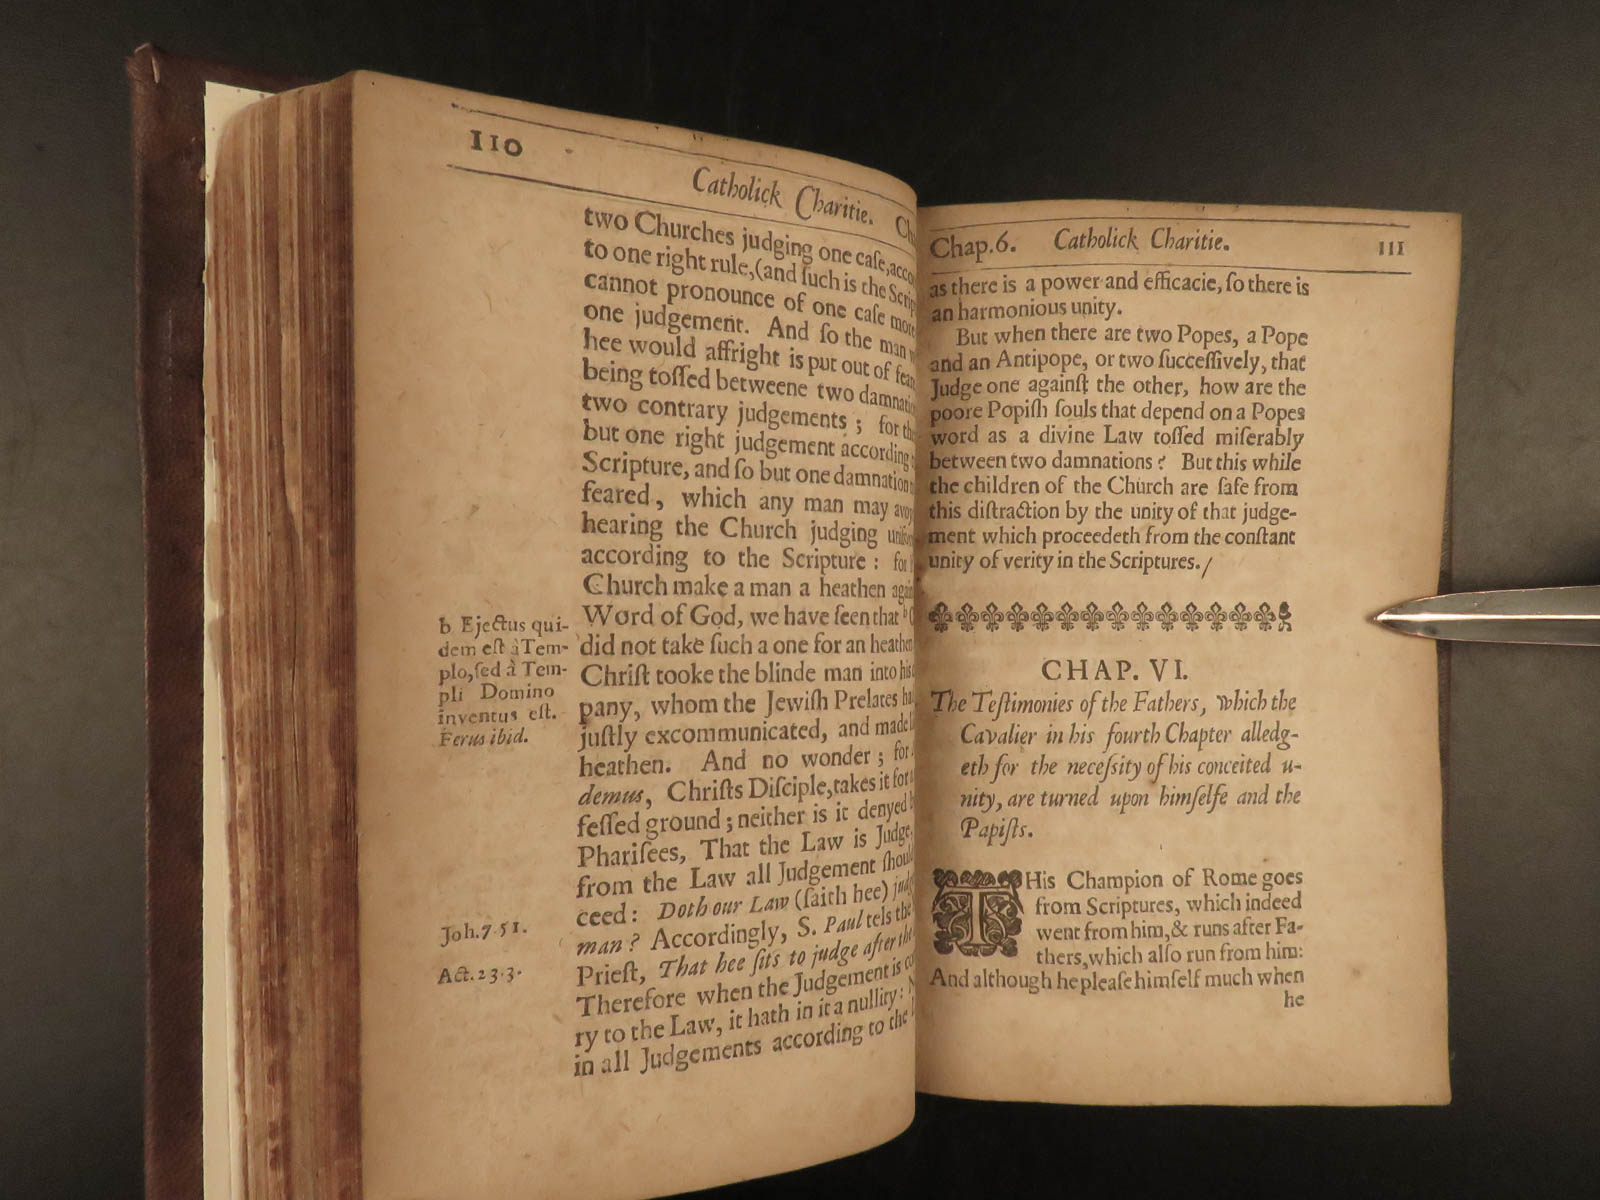 110
Catholick Charitie.
two Churches judging one caſe, acco
to one right rule, (and ſuch is the Scrip
cannot pronounce of one caſe more
one judgement. And ſo the man w
hee would affright is put out of fear
being toſſed betweene two damnatio
two contrary judgements; for the
but one right judgement according
Scripture, and ſo but one damnation
feared, which any man may avoy
hearing the Church judging unifor
according to the Scripture: for
Church make a man a heathen again
Word of God, we have ſeen that b
did not take ſuch a one for an heathen
Chriſt tooke the blinde man into his
pany, whom the Jewiſh Prelates ha
juſtly excommunicated, and made
heathen. And no wonder; for
demus, Chriſts Diſciple, takes it for a
feſſed ground; neither is it denyed b
Phariſees, That the Law is Judge,
from the Law all Judgement ſhould
ceed: Doth our Law (ſaith hee) judge
man? Accordingly, S. Paul tels the
Prieſt, That hee ſits to judge after the
Therefore when the Judgement is co
ry to the Law, it hath in it a nullity:
in all Judgements according to the
b Ejectus qui-
dem eſt à Tem-
plo, ſed à Tem-
pli Domino
inventus eſt.
Ferus ibid.
Joh. 7. 51.
Act. 23. 3.
Chap. 6. Catholick Charitie. 111
as there is a power and efficacie, ſo there is
an harmonious unity.
But when there are two Popes, a Pope
and an Antipope, or two ſucceſſively, that
Judge one againſt the other, how are the
poore Popiſh ſouls that depend on a Popes
word as a divine Law toſſed miſerably
between two damnations? But this while
the children of the Church are ſafe from
this diſtraction by the unity of that judge-
ment which proceedeth from the conſtant
unity of verity in the Scriptures./
CHAP. VI.
The Teſtimonies of the Fathers, which the
Cavalier in his fourth Chapter alledg-
eth for the neceſsity of his conceited u-
nity, are turned upon himſelfe and the
Papiſts.
THis Champion of Rome goes
from Scriptures, which indeed
went from him, & runs after Fa-
thers, which alſo run from him:
And although he pleaſe himſelf much when
he